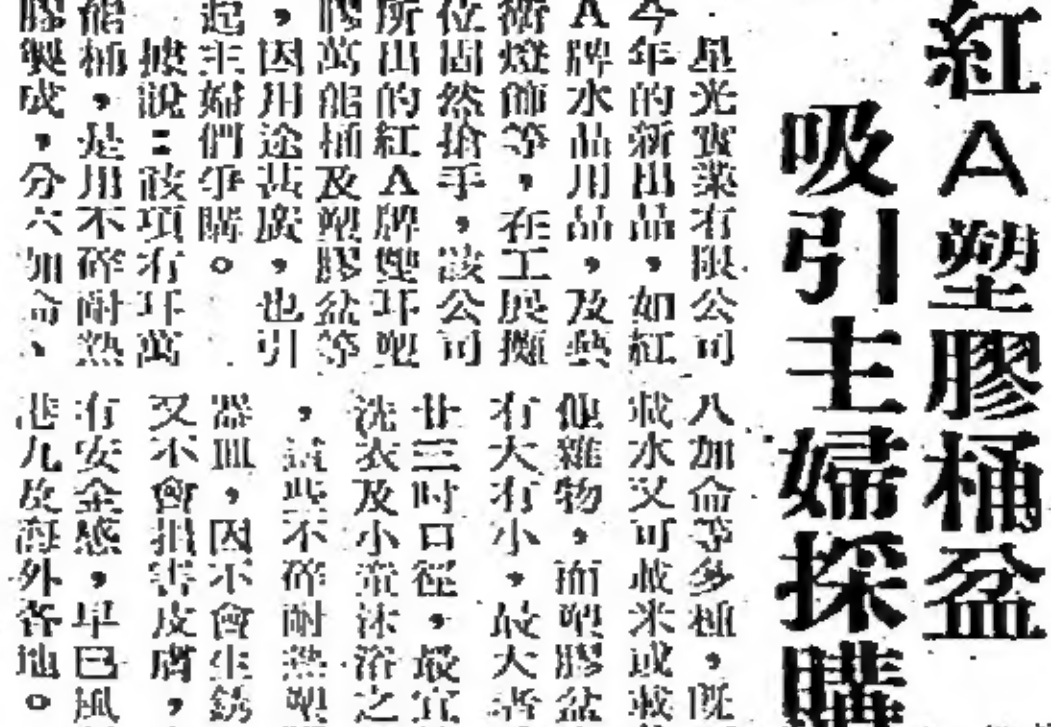 紅A塑膠桶盆
吸引主婦採購
星光實業有限公司
今年的新出品,如紅
A牌水晶用品,及藝
術燈飾等,在工展攤
位固然搶手,該公司
所出的紅A牌塑耳塑
膠萬能桶及塑膠盆等
,因用途甚廣,也引
起主婦們爭購。
據說:該項有耳萬
能桶,是用不碎耐熱
膠製成,分六加侖、
八加侖等多種,既
載水又可載米或載
他雜物,而塑膠盆
有大有小,最大者
廿三吋口徑,最宜
洗衣及小童沐浴之
,這些不碎耐熱塑
器皿,因不會生銹
又不會損害皮膚,
有安全感,早已風
港九及海外各地。